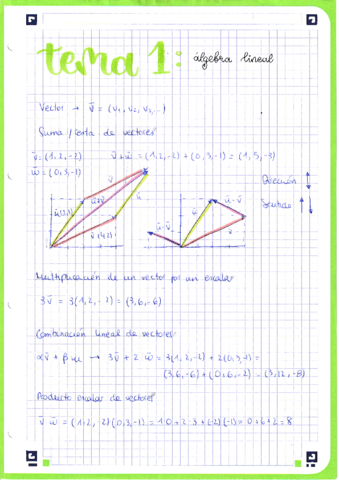 tema 1: álgebra lineal
Vector → v̄ = (v₁, v₂, v₃, ...)
Suma / resta de vectores
v̄ = (1, 2, -2)   v̄ + w̄ = (1, 2, -2) + (0, 3, -1) = (1, 5, -3)
w̄ = (0, 3, -1)
Dirección
Sentido
Multiplicación de un vector por un escalar
3v̄ = 3(1, 2, -2) = (3, 6, -6)
Combinación lineal de vectores
αv̄ + βw → 3v̄ + 2 w̄ = 3(1, 2, -2) + 2(0, 3, -1) =
(3, 6, -6) + (0, 6, -2) = (3, 12, -8)
Producto escalar de vectores
v̄ w̄ = (1, 2, -2)(0, 3, -1) = 1·0 + 2·3 + (-2)(-1) = 0 + 6 + 2 = 8